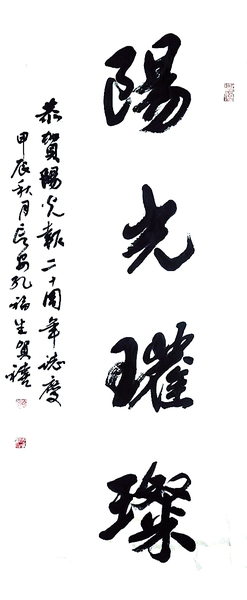 陽光璀璨
恭賀陽光報二十周年誌慶
甲辰秋月長安孔福生賀禧